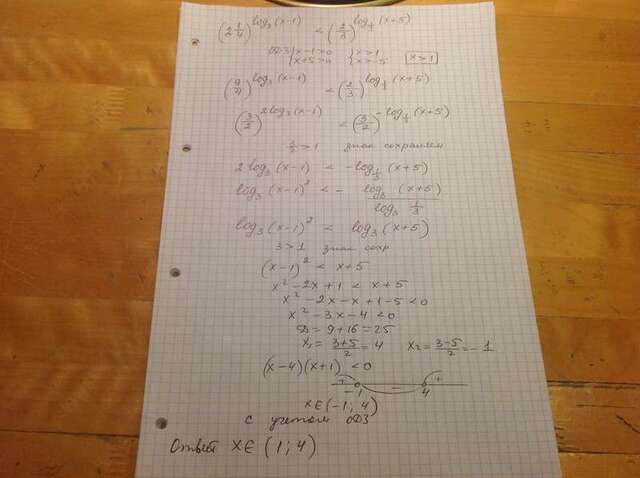 (2 1/4)^log₃(x-1) < (2/3)^log_1/3(x+5)
ОДЗ { x-1>0 { x>1
{ x+5>0 { x>-5 x>1
(9/4)^log₃(x-1) < (2/3)^log_1/3(x+5)
(3/2)^2log₃(x-1) < (3/2)^-log_1/3(x+5)
3/2 > 1 знак сохраняем
2 log₃(x-1) < -log_1/3(x+5)
log₃(x-1)² < - log₃(x+5) / log₃ 1/3
log₃(x-1)² < log₃(x+5)
3>1 знак сохр
(x-1)² < x+5
x² -2x+1 < x+5
x² -2x-x+1-5<0
x² -3x-4<0
D = 9+16=25
x₁= 3+5/2 = 4 x₂= 3-5/2 = -1
(x-4)(x+1) <0
+ - +
-1 4
x∈(-1; 4)
с учетом ОДЗ
Ответ x∈ (1; 4)